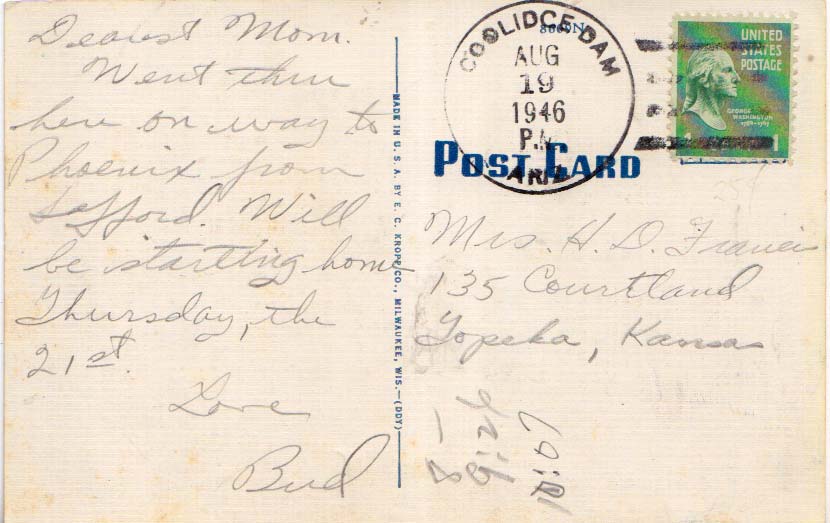 Dearest Mom.
Went thru
here on way to
Phoenix from
Safford. Will
be starting home
Thursday, the
21st.
Love
Bud
MADE IN U. S. A. BY E. C. KROPP CO., MILWAUKEE, WIS.—(DDY)
COOLIDGE DAM
AUG
19
1946
P.M.
ARIZ
UNITED
STATES
POSTAGE
GEORGE
WASHINGTON
1789-1797
1
POST CARD
Mrs. H. D. Francis
135 Courtland
Topeka, Kansas
25¢